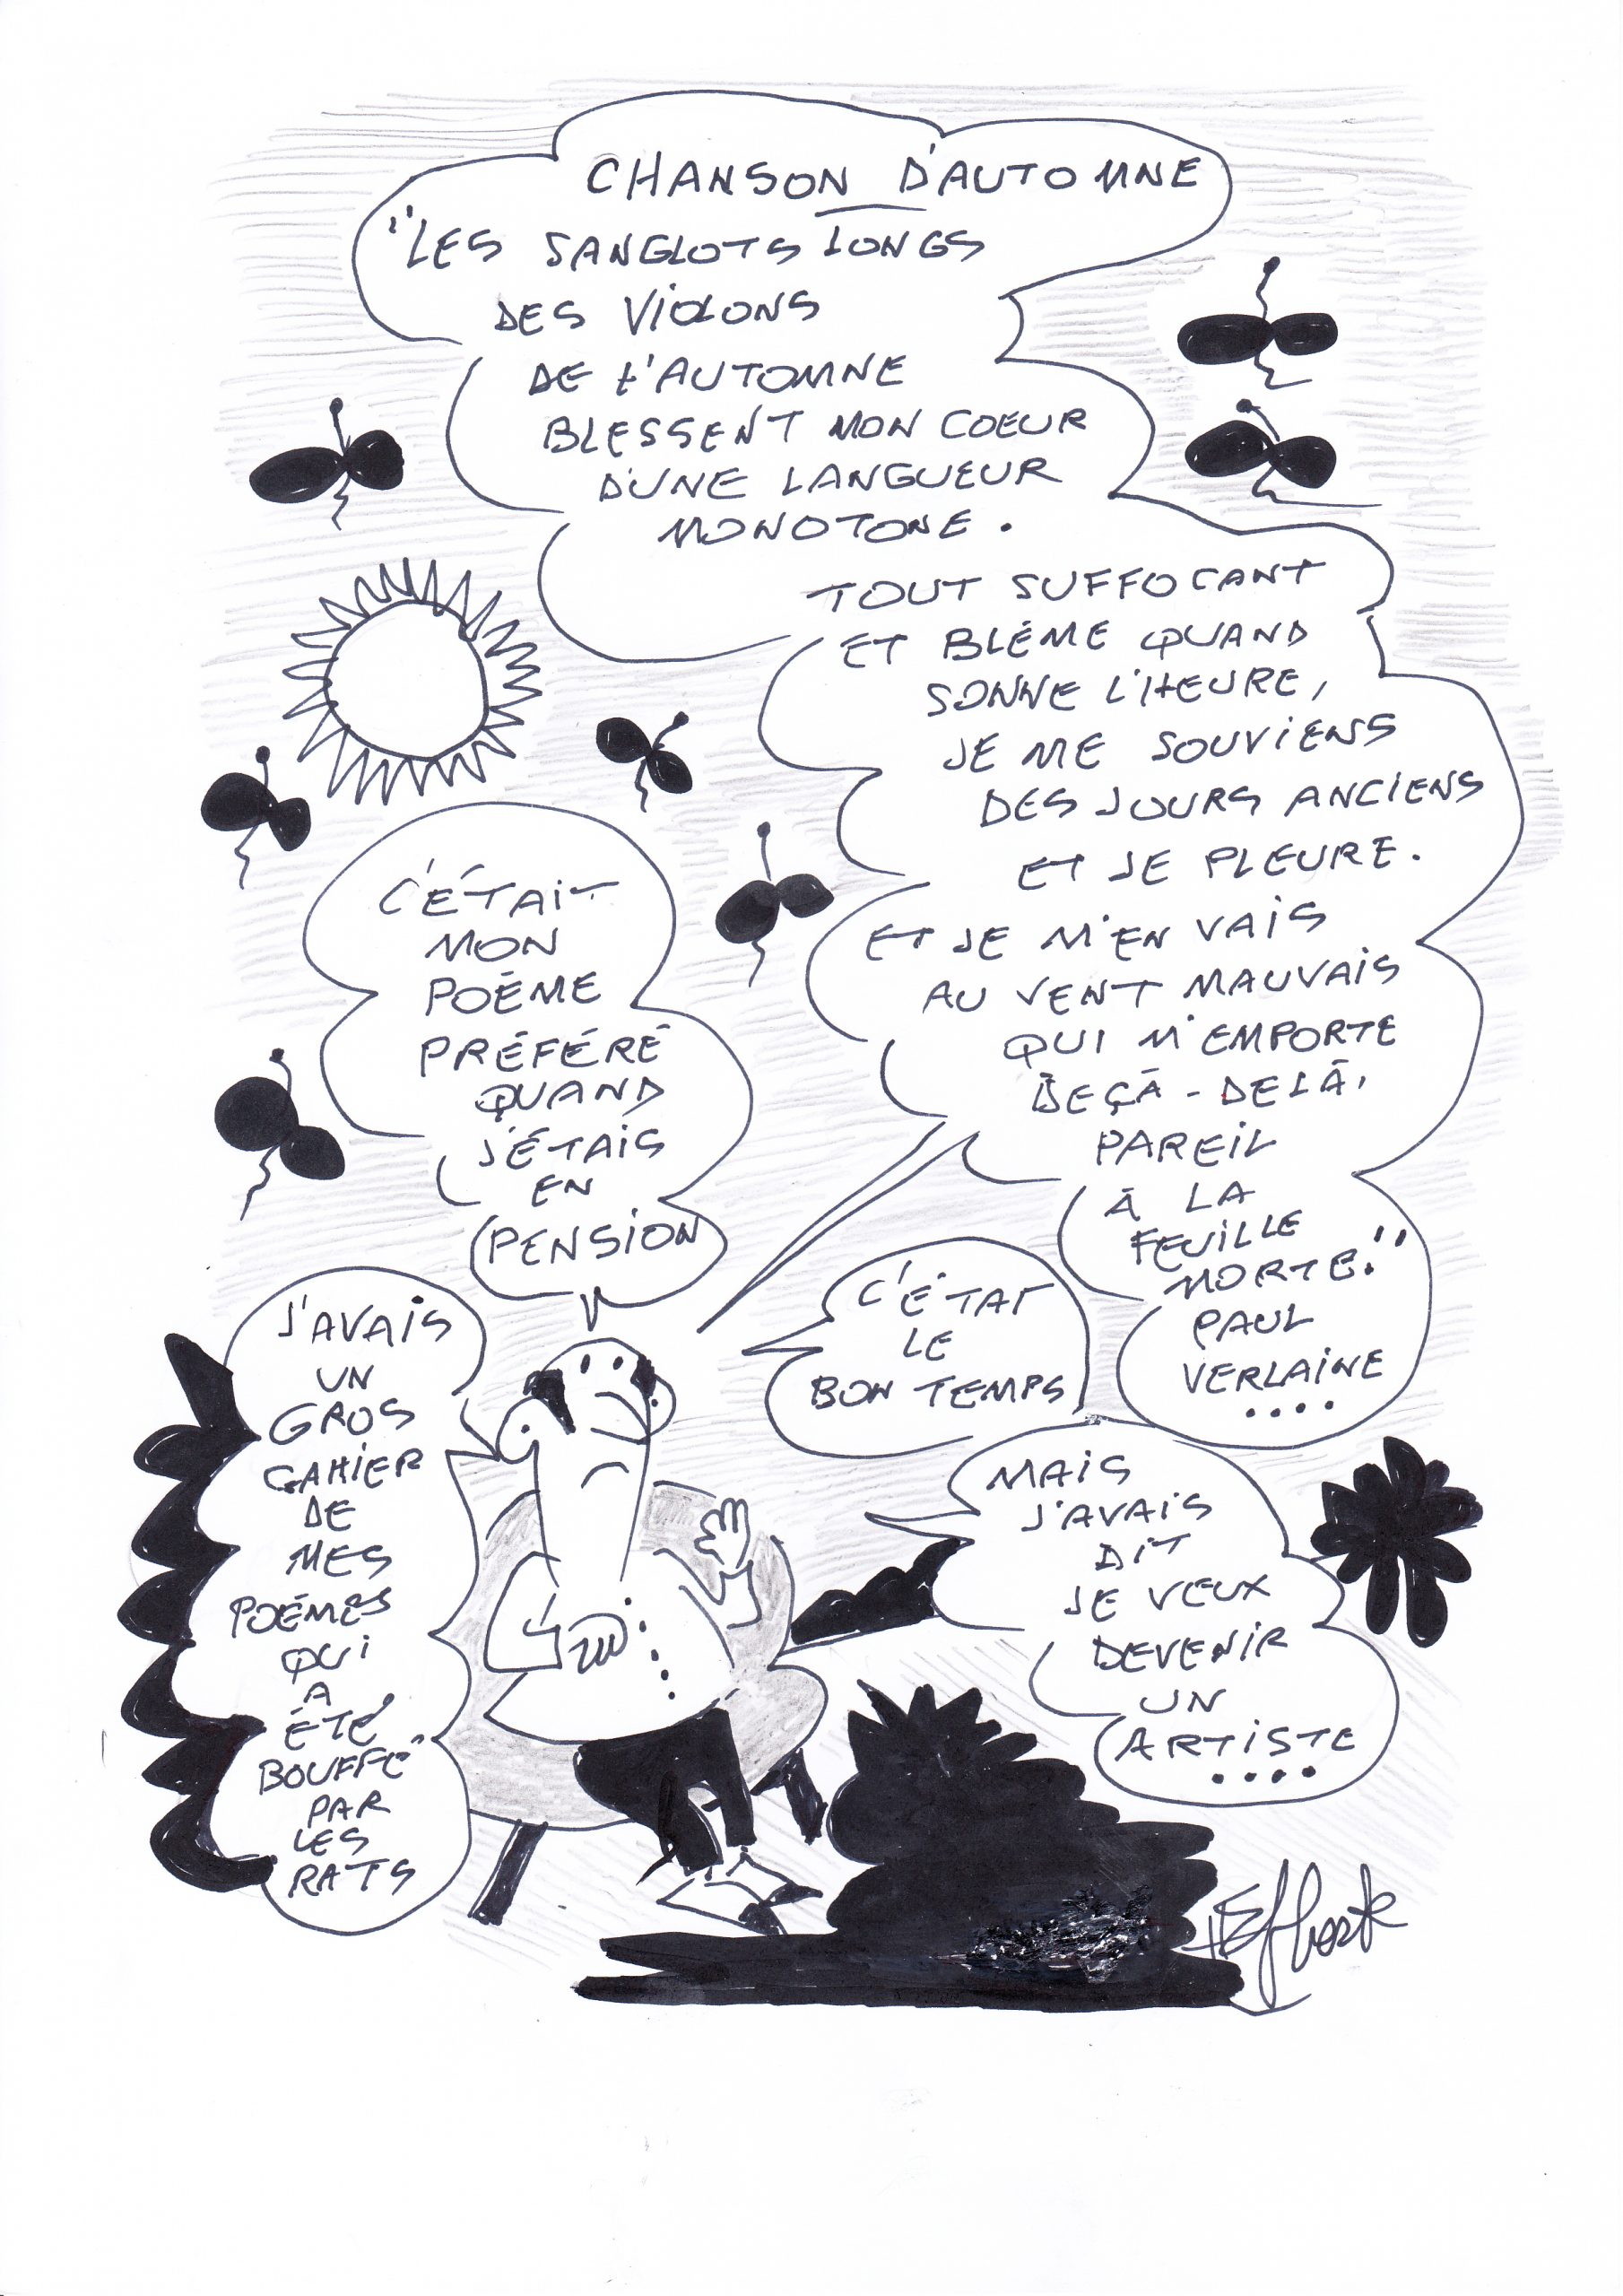 CHANSON D'AUTOMNE
"LES SANGLOTS LONGS
DES VIOLONS
DE L'AUTOMNE
BLESSENT MON COEUR
D'UNE LANGUEUR
MONOTONE.
TOUT SUFFOCANT
ET BLÊME QUAND
SONNE L'HEURE,
JE ME SOUVIENS
DES JOURS ANCIENS
ET JE PLEURE.
ET JE M'EN VAIS
AU VENT MAUVAIS
QUI M'EMPORTE
DEÇÀ - DELÀ,
PAREIL
À LA
FEUILLE
MORTE."
PAUL
VERLAINE
....
C'ÉTAIT
MON
POÈME
PRÉFÉRÉ
QUAND
J'ÉTAIS
EN
PENSION
J'AVAIS
UN
GROS
CAHIER
DE
MES
POÈMES
QUI
A
ÉTÉ
BOUFFÉ
PAR
LES
RATS
C'ÉTAT
LE
BON TEMPS
MAIS
J'AVAIS
DIT
JE VEUX
DEVENIR
UN
ARTISTE
....